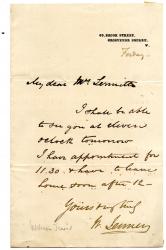 69, BROOK STREET,
GROSVENOR SQUARE,
W.
Friday
My dear Mrs
I shall be able
to see you at eleven
o'clock tomorrow
I have appointment for
11.30 & have to leave
home soon after 12 —
Yours truly
W.